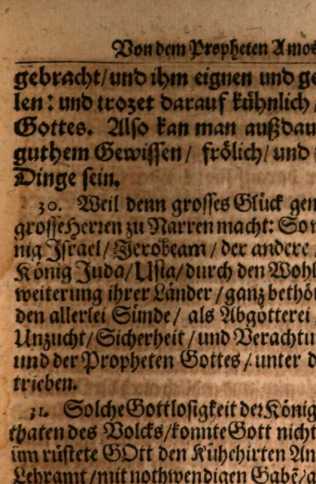 Von dem Propheten Amos
gebracht/ und ihm eignen und ge
len: und trozet darauf kühnlich/
Gottes. Also kan man außdau
guthem Gewissen/ frölich/ und
Dinge sein.
30. Weil denn grosses Glück gen
grosse Herren zu Narren macht: So
nig Israel/ Jerobeam/ der andere
König Juda/ Usia/ durch den Wohl
weiterung ihrer Länder/ ganz bethö
den allerlei Sünde/ als Abgötterei
Unzucht/ Sicherheit/ und Verachtu
und der Propheten Gottes/ unter d
trieben.
31. Solche Gottlosigkeit der König
thaten des Volcks/ konnte Gott nicht
üm rüstete GOtt den Kühehirten Am
Lehramt/ mit nothwendigen Gabē/